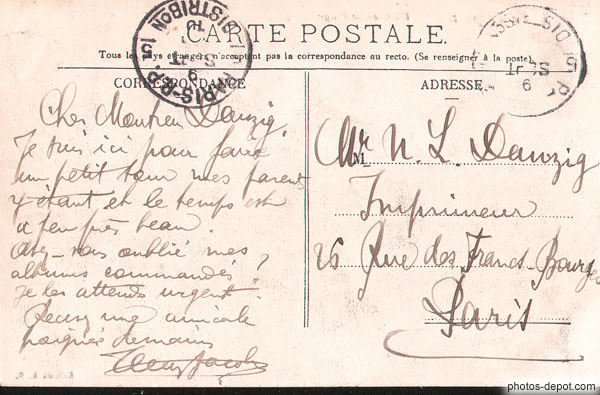 CARTE POSTALE.
Tous les pays étrangers n'acceptent pas la correspondance au recto. (Se renseigner à la poste)
CORRESPONDANCE
ADRESSE
Cher Monsieur Danzig,
Je suis ici pour faire
un petit tour mes parents
y étant et le temps est
à peu près beau.
Avez-vous oublié mes
albums commandés,
Je les attends urgent.
Recevez une amicale
poignée de mains
Jacobs
Mr. N. L. Danzig
Imprimeur
26 Rue des Francs-Bourgeois
Paris
PARIS
DISTRIBON
15
photos-depot.com